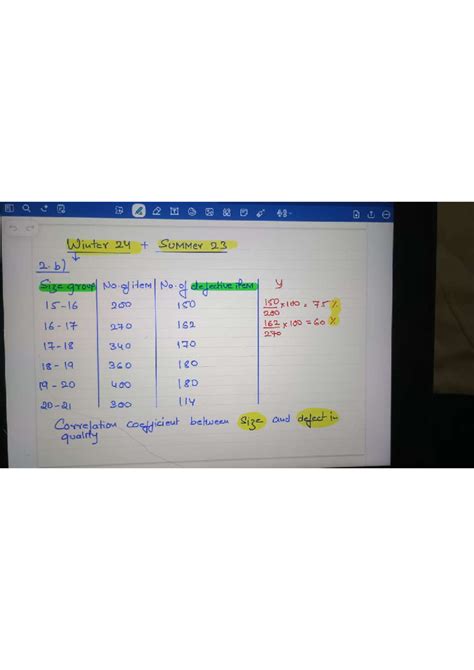 Winter 24 + Summer 23
2.b)
Size group No. of item No. of defective item y
15-16 200 150 150/200 × 100 = 75%
16-17 270 162 162/270 × 100 = 60%
17-18 340 170
18-19 360 180
19-20 400 180
20-21 300 114
Correlation coefficient between size and defect in
quality